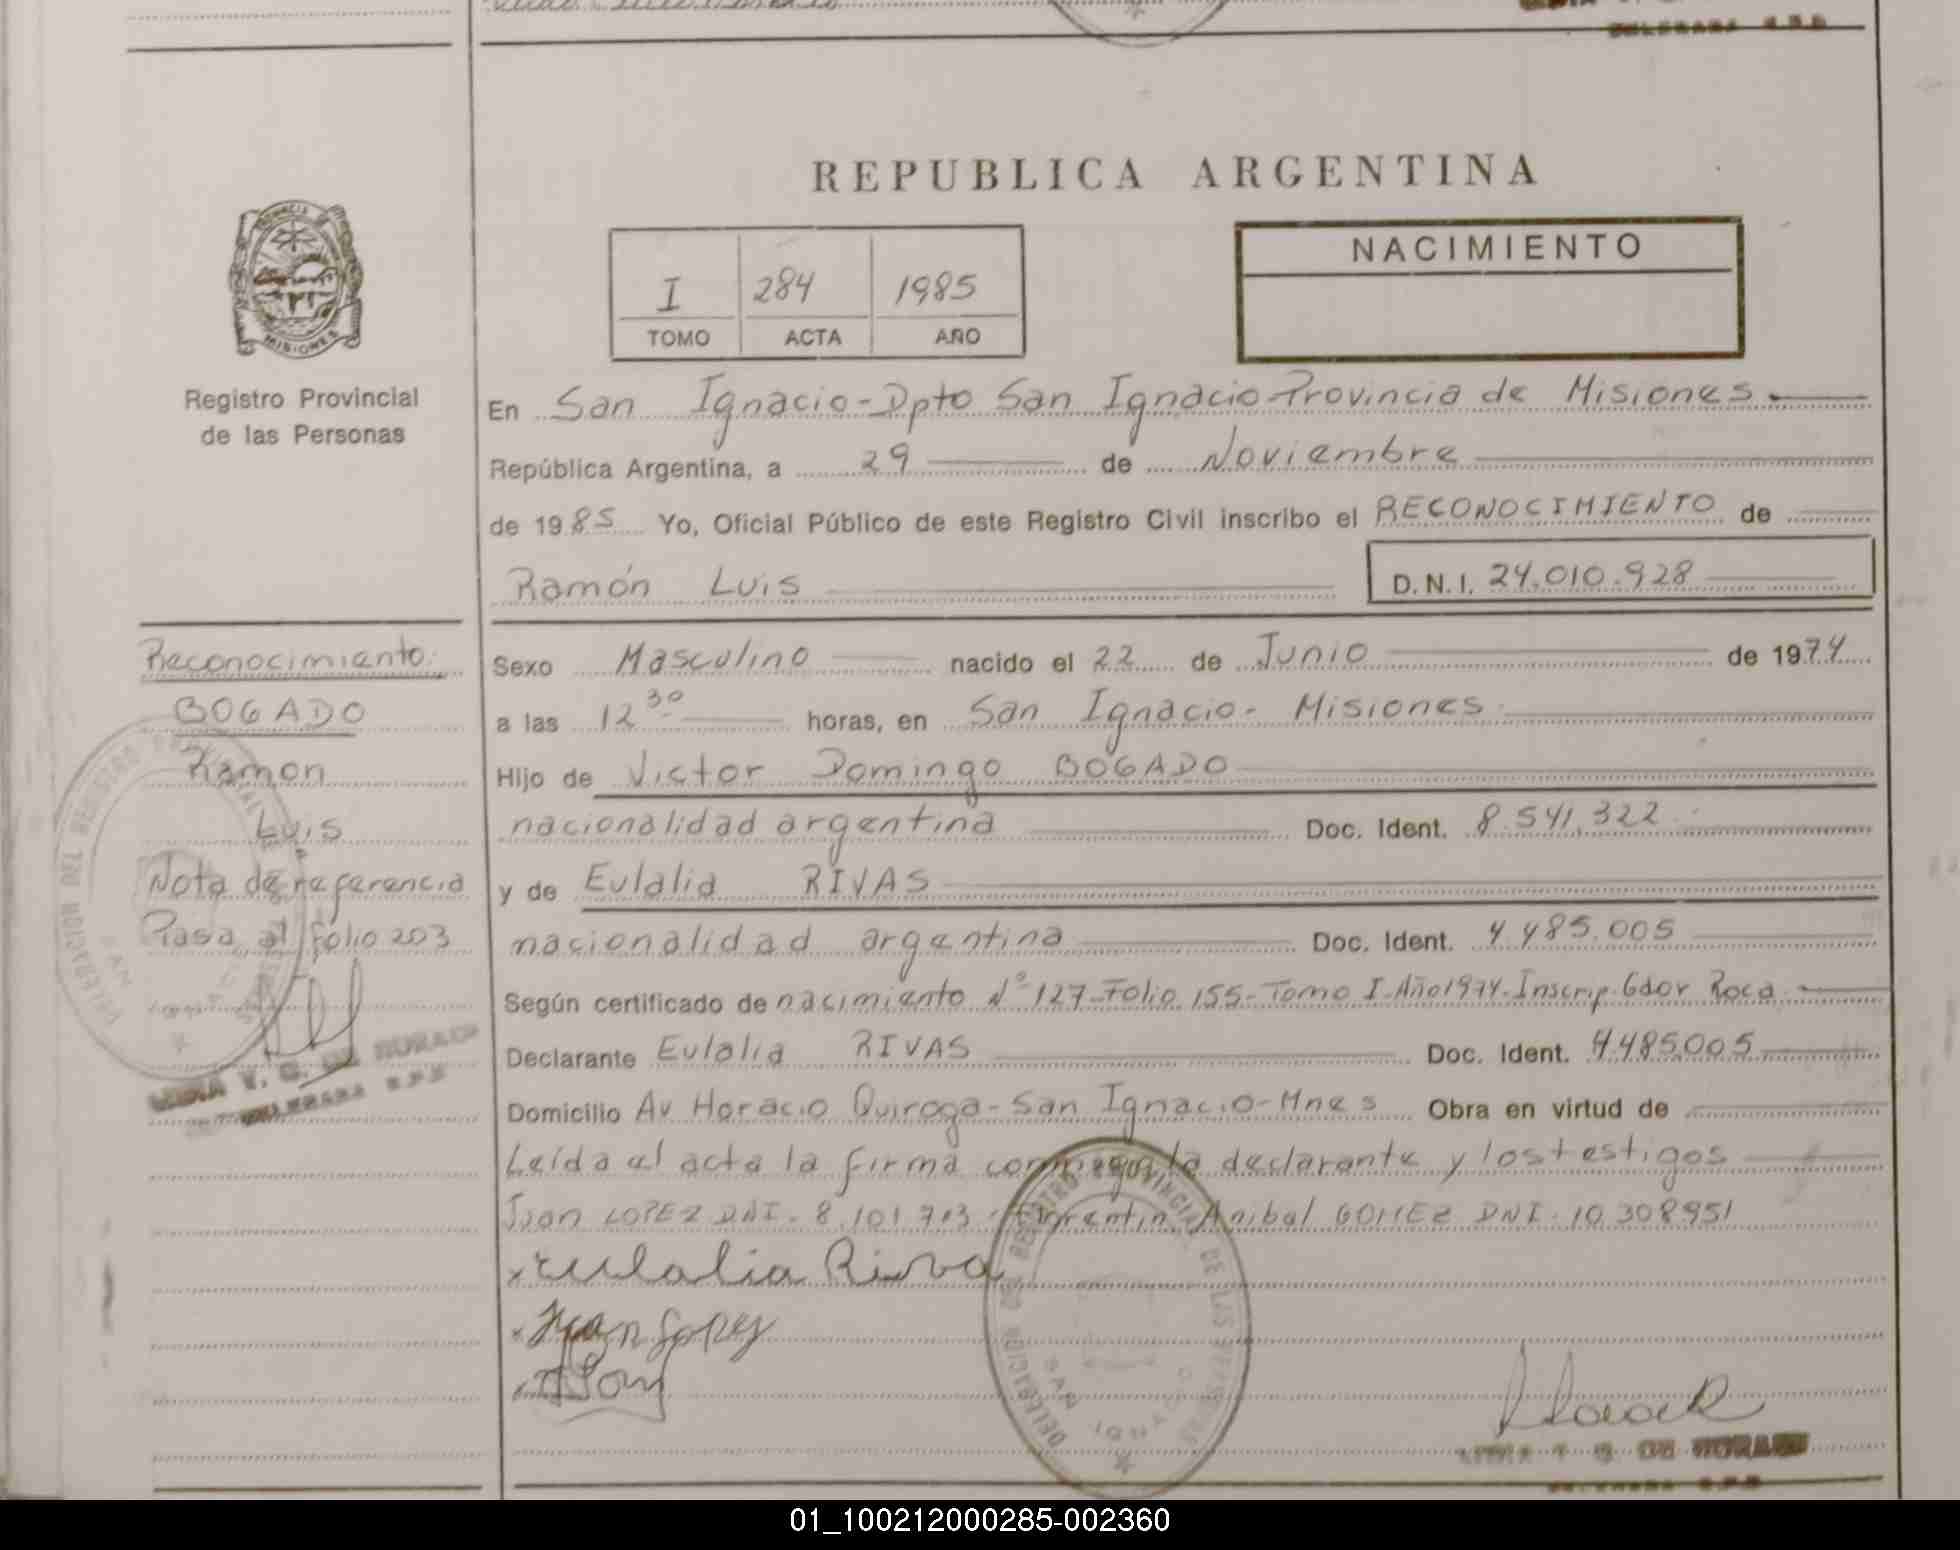 REPUBLICA ARGENTINA
I 284 1985
TOMO ACTA AÑO
NACIMIENTO
MISIONES
Registro Provincial
de las Personas
En San Ignacio-Dpto San Ignacio-Provincia de Misiones
República Argentina, a 29 de Noviembre
de 1985 Yo, Oficial Público de este Registro Civil inscribo el RECONOCIMIENTO de
Ramón Luis D.N.I. 24.010.928
Reconocimiento
BOGADO
Ramon
Luis
Nota de referencia
Pasa al folio 203
Sexo Masculino nacido el 22 de Junio de 1974
a las 12 30 horas, en San Ignacio- Misiones
Hijo de Victor Domingo BOGADO
nacionalidad argentina Doc. Ident. 8.541.322
y de Eulalia RIVAS
nacionalidad argentina Doc. Ident. 4.485.005
Según certificado de nacimiento Nº 127-Folio 155-Tomo I-Año1974-Inscrip Gdor Roca
Declarante Eulalia RIVAS Doc. Ident. 4.485.005
Domicilio Av Horacio Quiroga-San Ignacio-Mnes Obra en virtud de
Leída el acta la firma conmigo la declarante y los testigos
Juan LOPEZ DNI-8.101.703 Anibal GOMEZ DNI-10.308951
Eulalia Riva
Juan Lopez
DELEGACION DEL REGISTRO PROVINCIAL DE LAS PERSONAS
SAN IGNACIO
01_100212000285-002360